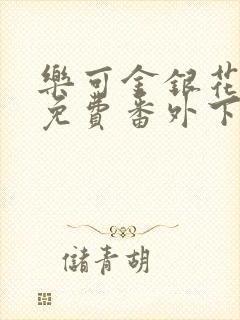 樂可金銀花
免費番外下
儲青胡